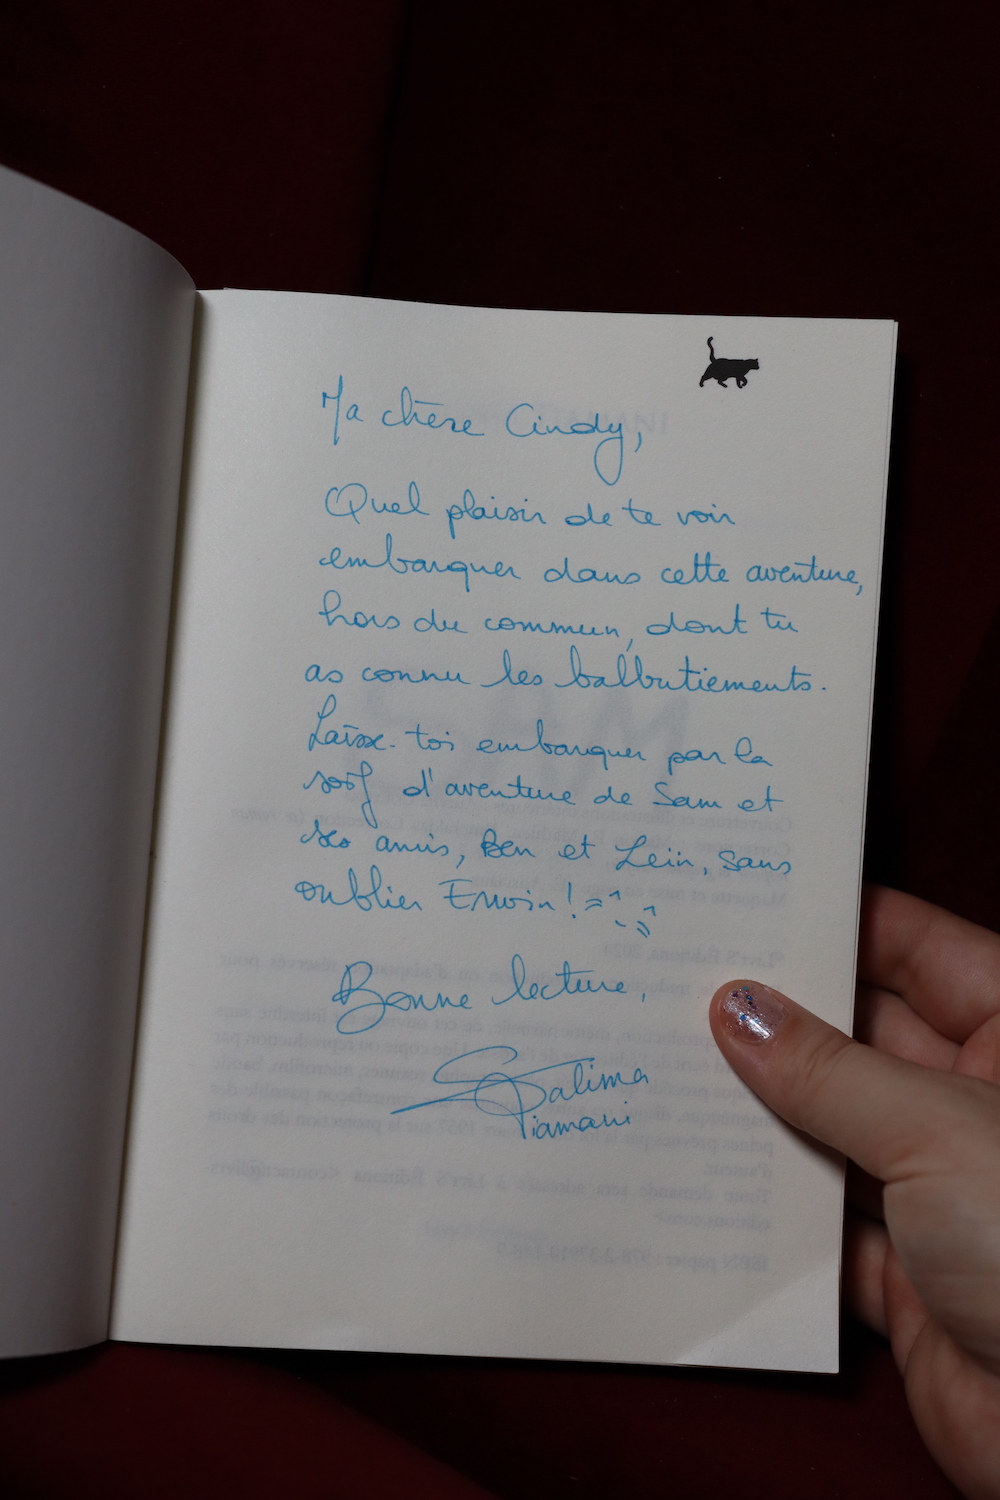 Ma chère Cindy,
Quel plaisir de te voir
embarquer dans cette aventure,
hors du commun, dont tu
as connu les balbutiements.
Laisse-toi embarquer par la
soif d'aventure de Sam et
ses amis, Ben et Lein, sans
oublier Erwin !
Bonne lecture,
Salima
Tiamani